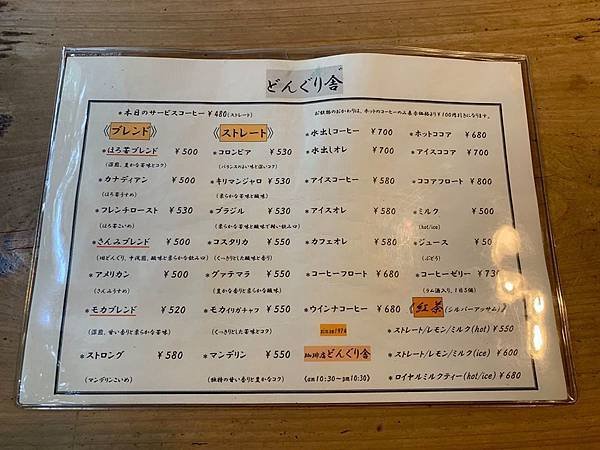 どんぐり舎
*本日のサービスコーヒー ¥480(ストレート)
お飲物のおかわりは、ホットのコーヒーのみ表示価格より¥100円引きになります。
《ブレンド》
*ほろ苦ブレンド ¥500
(深煎、豊かな苦味とコク)
*カナディアン ¥500
(ほろ苦うすめ)
*フレンチロースト ¥530
(ほろ苦こいめ)
*さんみブレンド ¥500
(旧どんぐり、中浅煎、酸味と柔らかな飲み口)
*アメリカン ¥500
(さんみうすめ)
*モカブレンド ¥520
(深煎、甘い香りと柔らかな苦味)
*ストロング ¥580
(マンデリンこいめ)
《ストレート》
*コロンビア ¥530
(バランスのよい味と深いコク)
*キリマンジャロ ¥530
(柔らかな苦味と酸味)
*ブラジル ¥530
(柔らかな苦味と酸味で軽い飲み口)
*コスタリカ ¥550
(くっきりとした酸味と香り)
*グァテマラ ¥550
(豊かな香りと柔らかな酸味)
*モカイリガチャフ ¥550
(くっきりとした苦味とコク)
*マンデリン ¥550
(独特の甘い香りと豊かなコク)
*水出しコーヒー ¥700
*水出しオレ ¥700
*アイスコーヒー ¥580
*アイスオレ ¥580
*カフェオレ ¥580
*コーヒーフロート ¥680
*ウインナコーヒー ¥680
since1974
珈琲店どんぐり舎
《AM10:30〜PM10:30》
*ホットココア ¥680
*アイスココア ¥700
*ココアフロート ¥800
*ミルク ¥500
(hot/ice)
*ジュース ¥50
(ぶどう)
*コーヒーゼリー ¥730
(ラム酒入り、1日5個)
《紅茶(シルバーアッサム)》
*ストレート/レモン/ミルク(hot) ¥550
*ストレート/レモン/ミルク(ice) ¥600
*ロイヤルミルクティー(hot/ice) ¥680